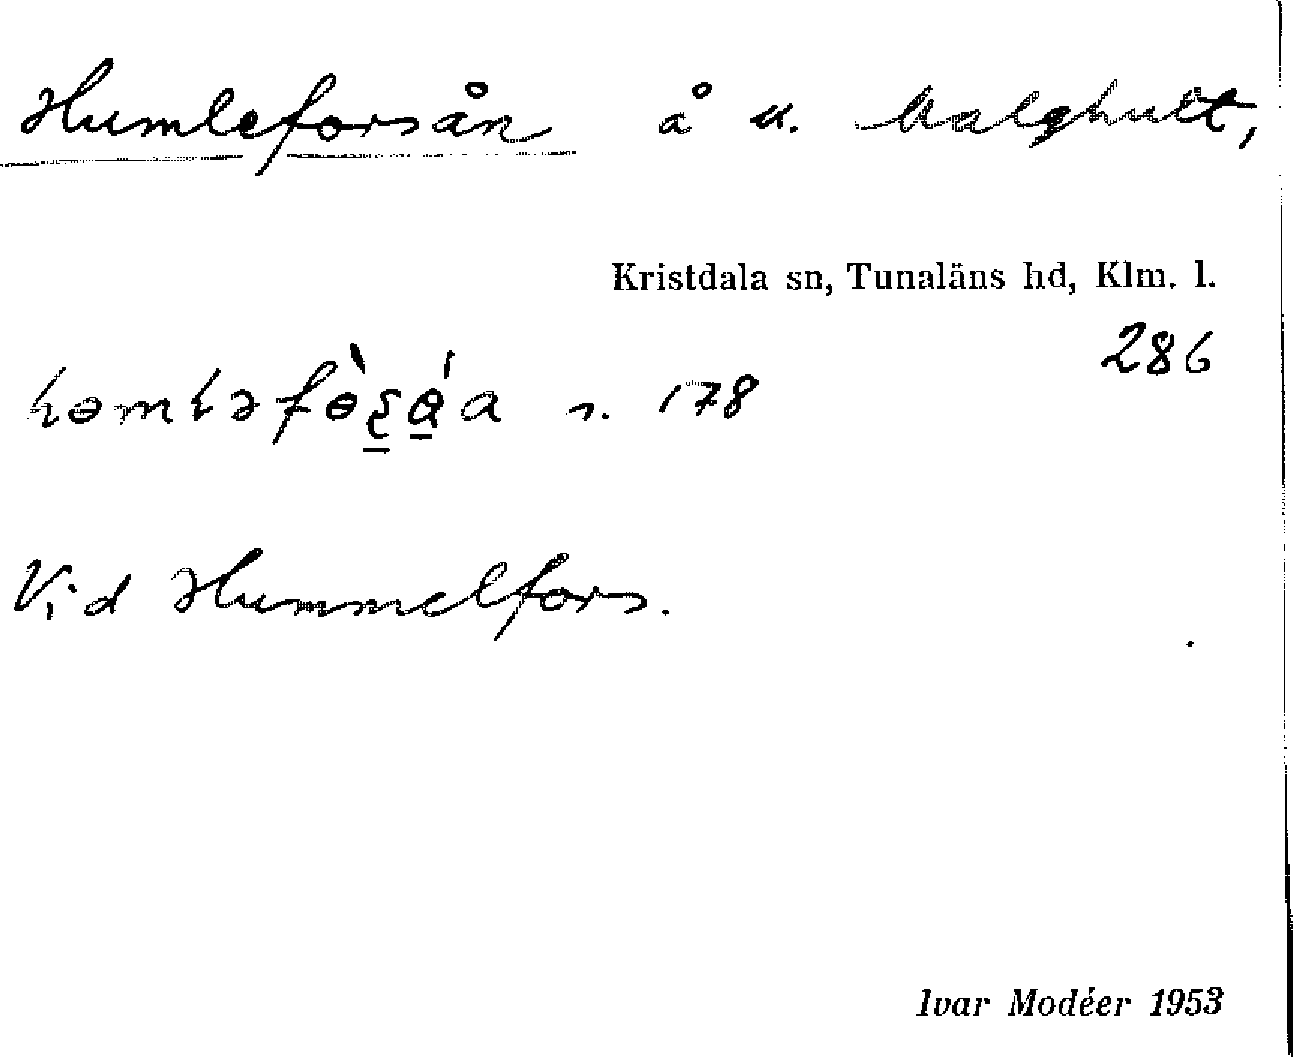 Humleforsån å u. Malghult,
Kristdala sn, Tunaläns hd, Klm. l.
286
s. 178
Vid Hummelfors.
Ivar Modéer 1953